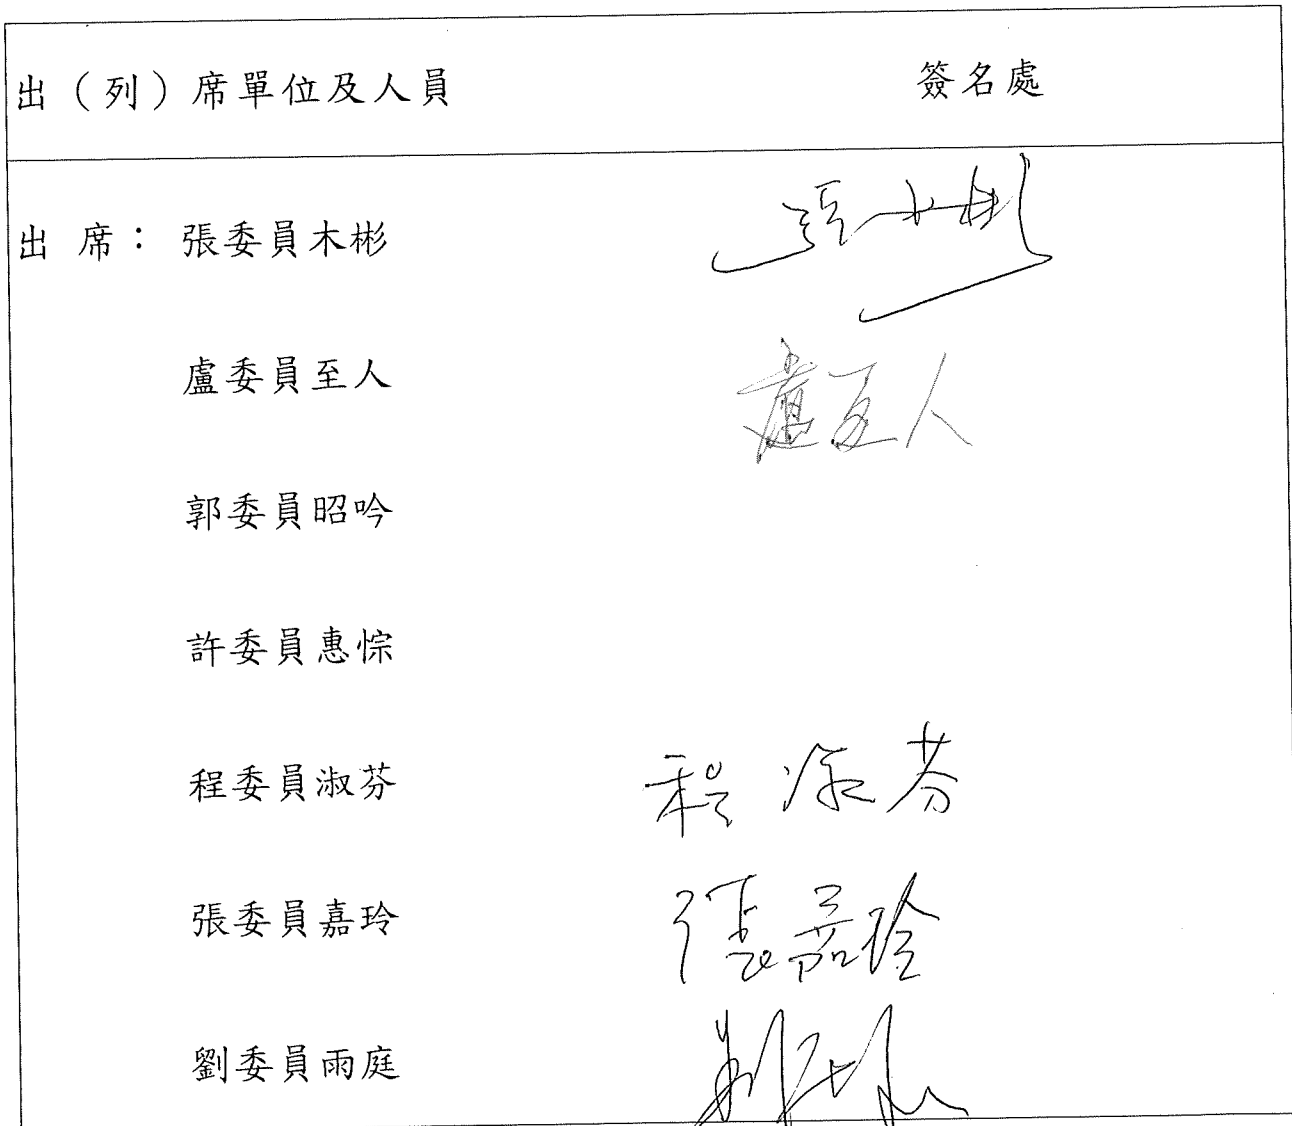 出（列）席單位及人員 簽名處
出 席： 張委員木彬 張木彬
盧委員至人 盧至人
郭委員昭吟
許委員惠悰
程委員淑芬 程淑芬
張委員嘉玲 張嘉玲
劉委員雨庭